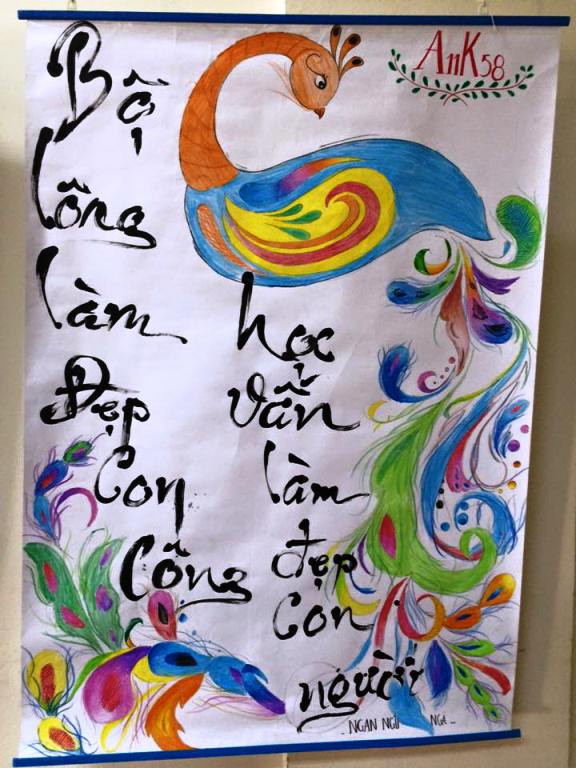 A11K58
Bộ
lông
làm
Đẹp
Con
Công
học
vấn
làm
đẹp
con
người
NGAN